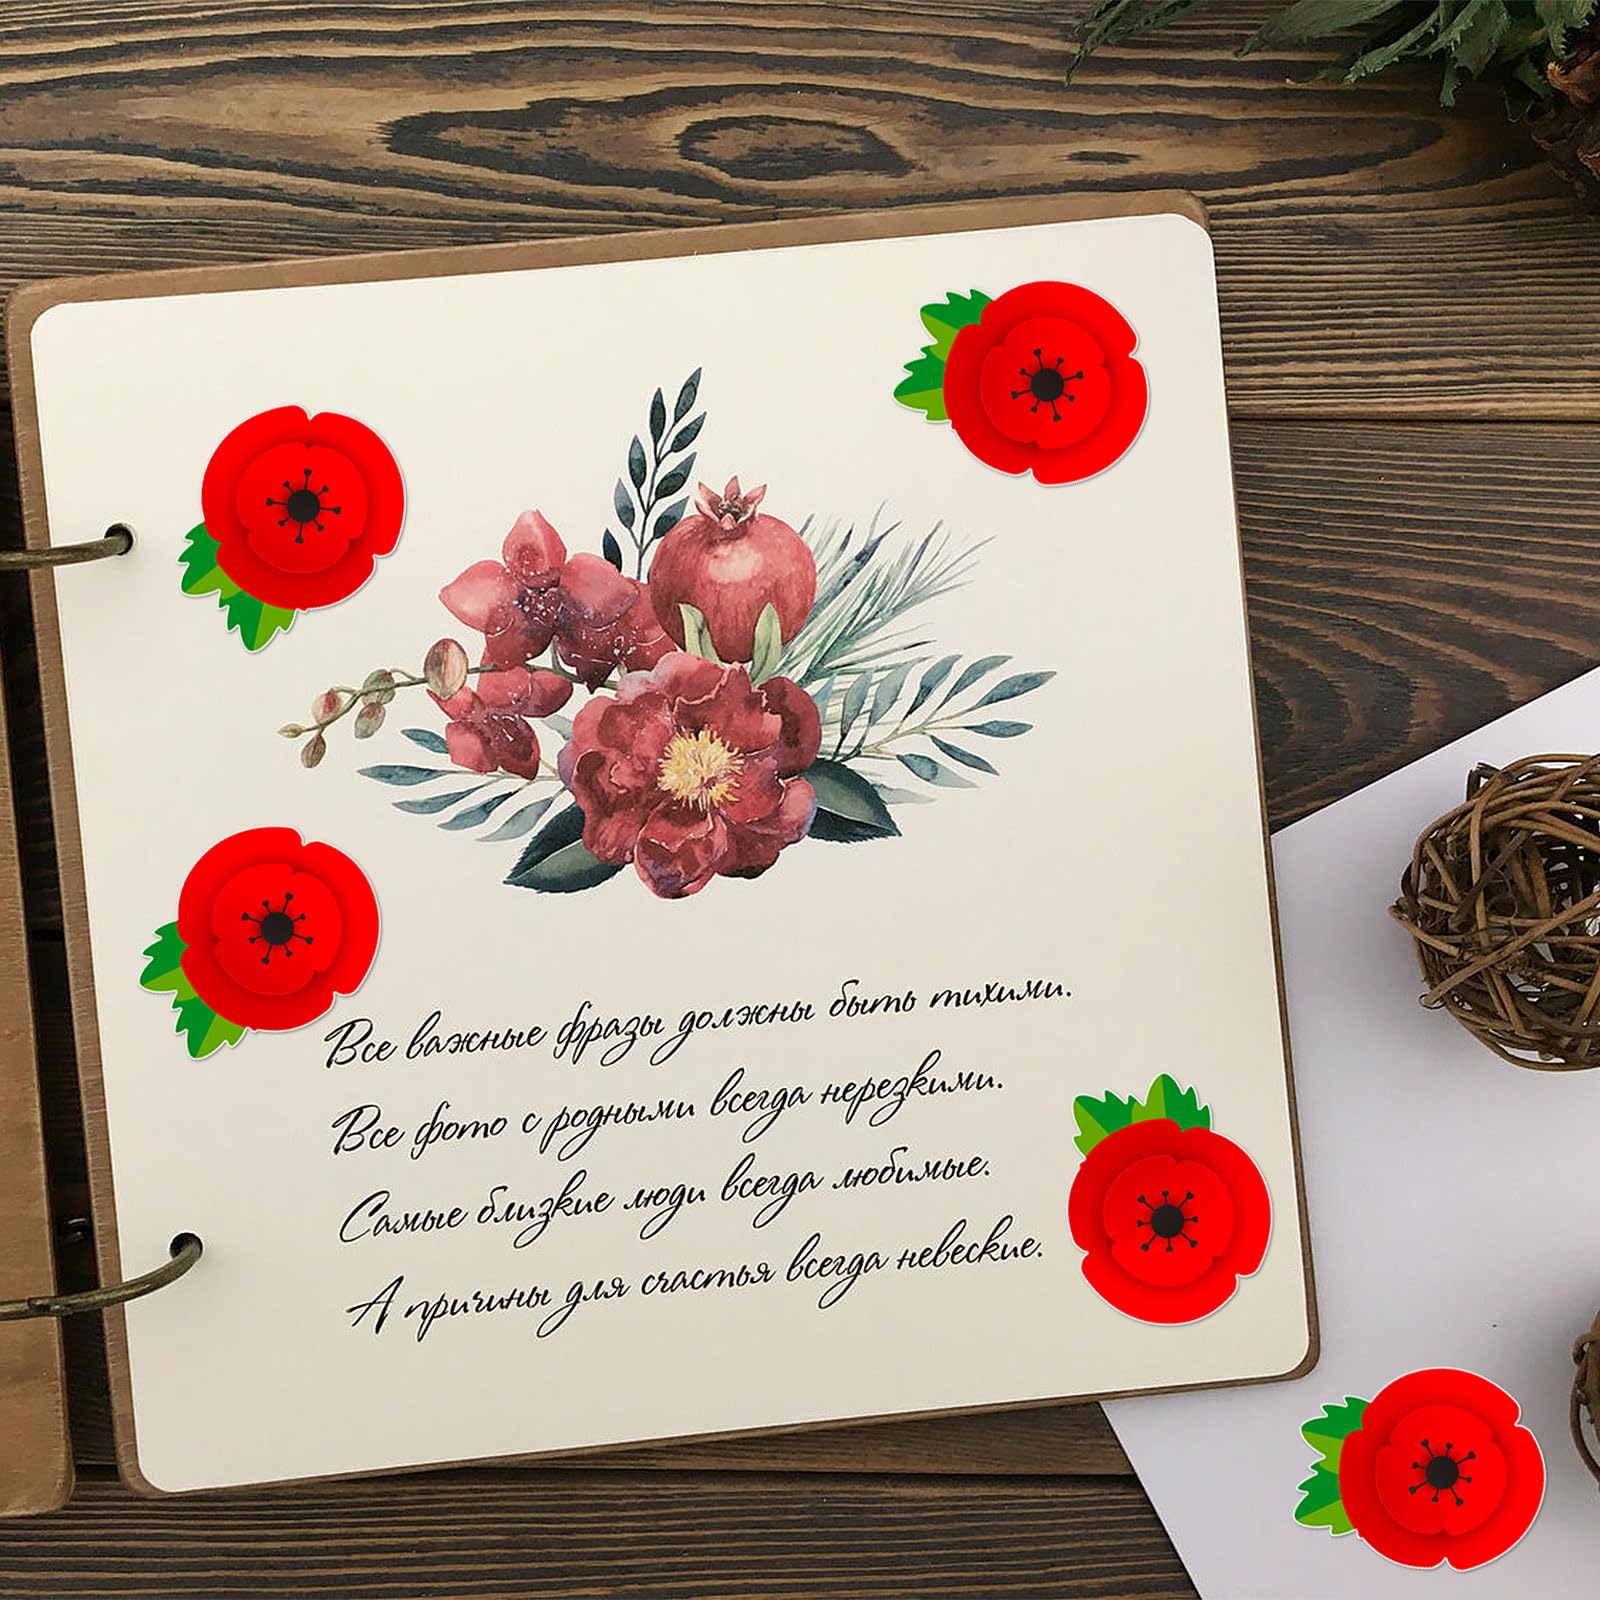 Все важные фразы должны быть тихими.
Все фото с родными всегда нерезкими.
Самые близкие люди всегда любимые.
А причины для счастья всегда невеские.